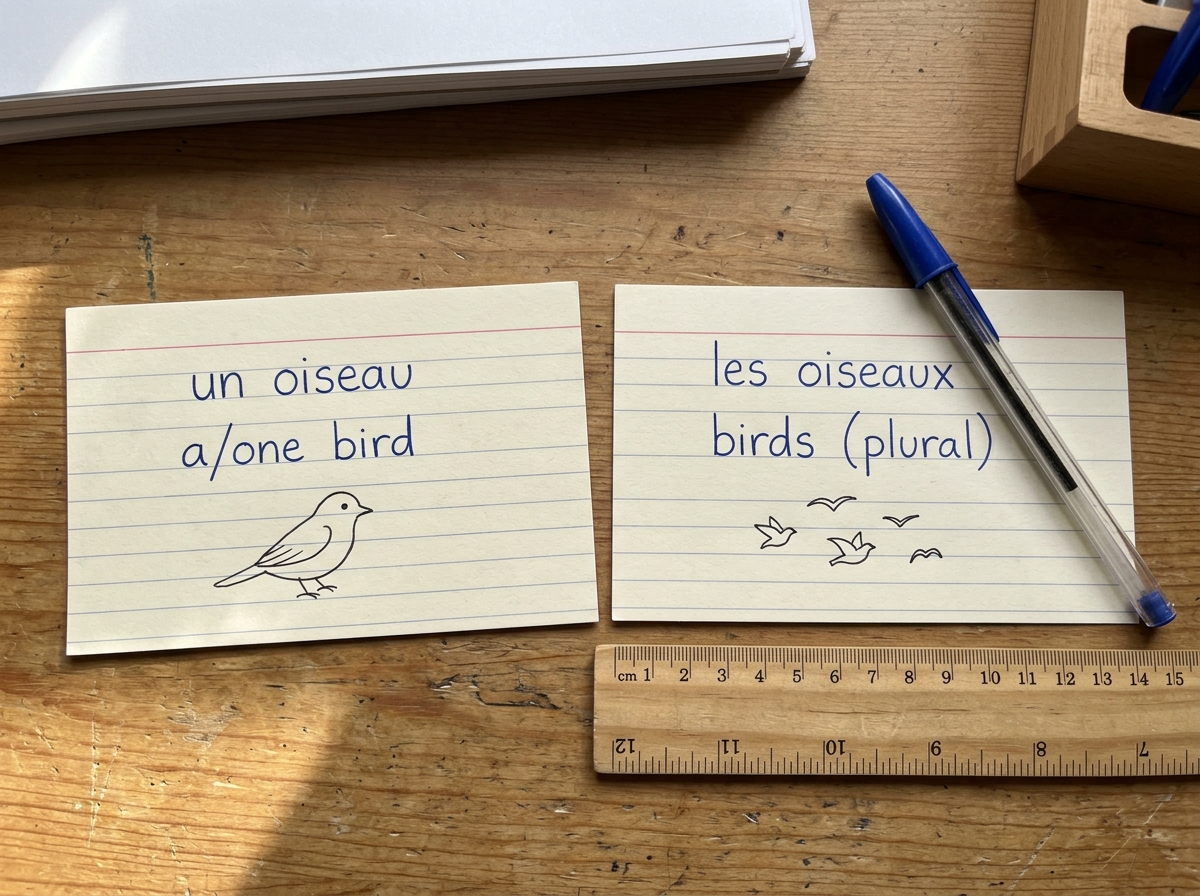 un oiseau
a/one bird
les oiseaux
birds (plural)
cm 1 2 3 4 5 6 7 8 9 10 11 12 13 14 15
12 11 10 9 8 7